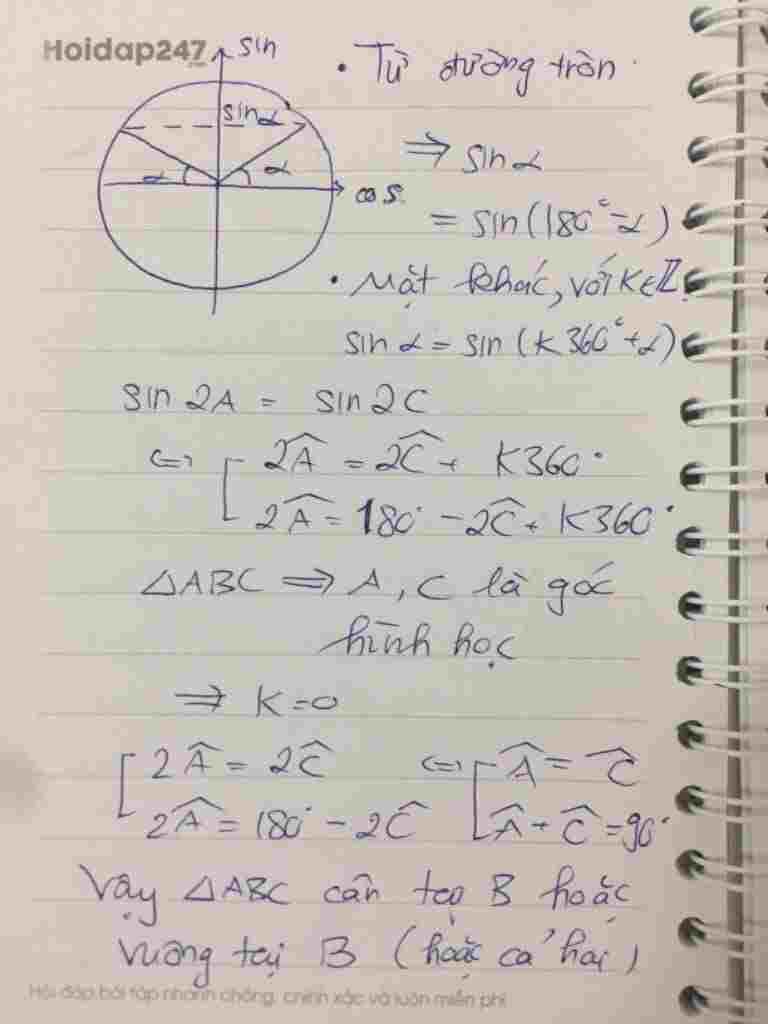 Hoidap247
.com
sin
• Từ đường tròn
sinα
α
α
cos
⇒ sinα
= sin(180° - α)
• Mặt khác, với K∈ℤ.
sin α = sin (K360° + α)
sin 2A = sin 2C
⇔ [ 2Â = 2Ĉ + K360°
2Â = 180° - 2Ĉ + K360°
△ABC ⇒ A, C là góc
hình học
⇒ K = 0
[ 2Â = 2Ĉ ⇔ [ Â = Ĉ
2Â = 180° - 2Ĉ Â + Ĉ = 90°
Vậy △ABC cân tại B hoặc
vuông tại B (hoặc cả hai)
Hỏi đáp bài tập nhanh chóng, chính xác và luôn miễn phí